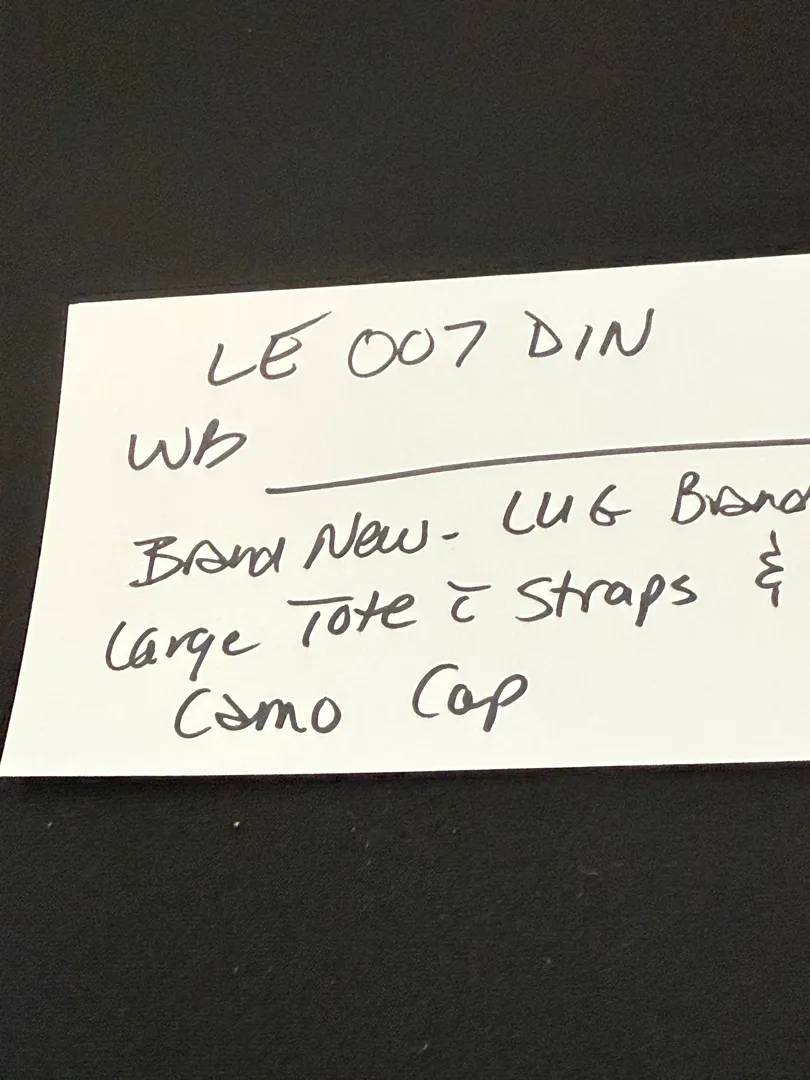 LE 007 DIN
WB
Brand New - LUG Brand
Large Tote c̄ Straps &
Camo Cap